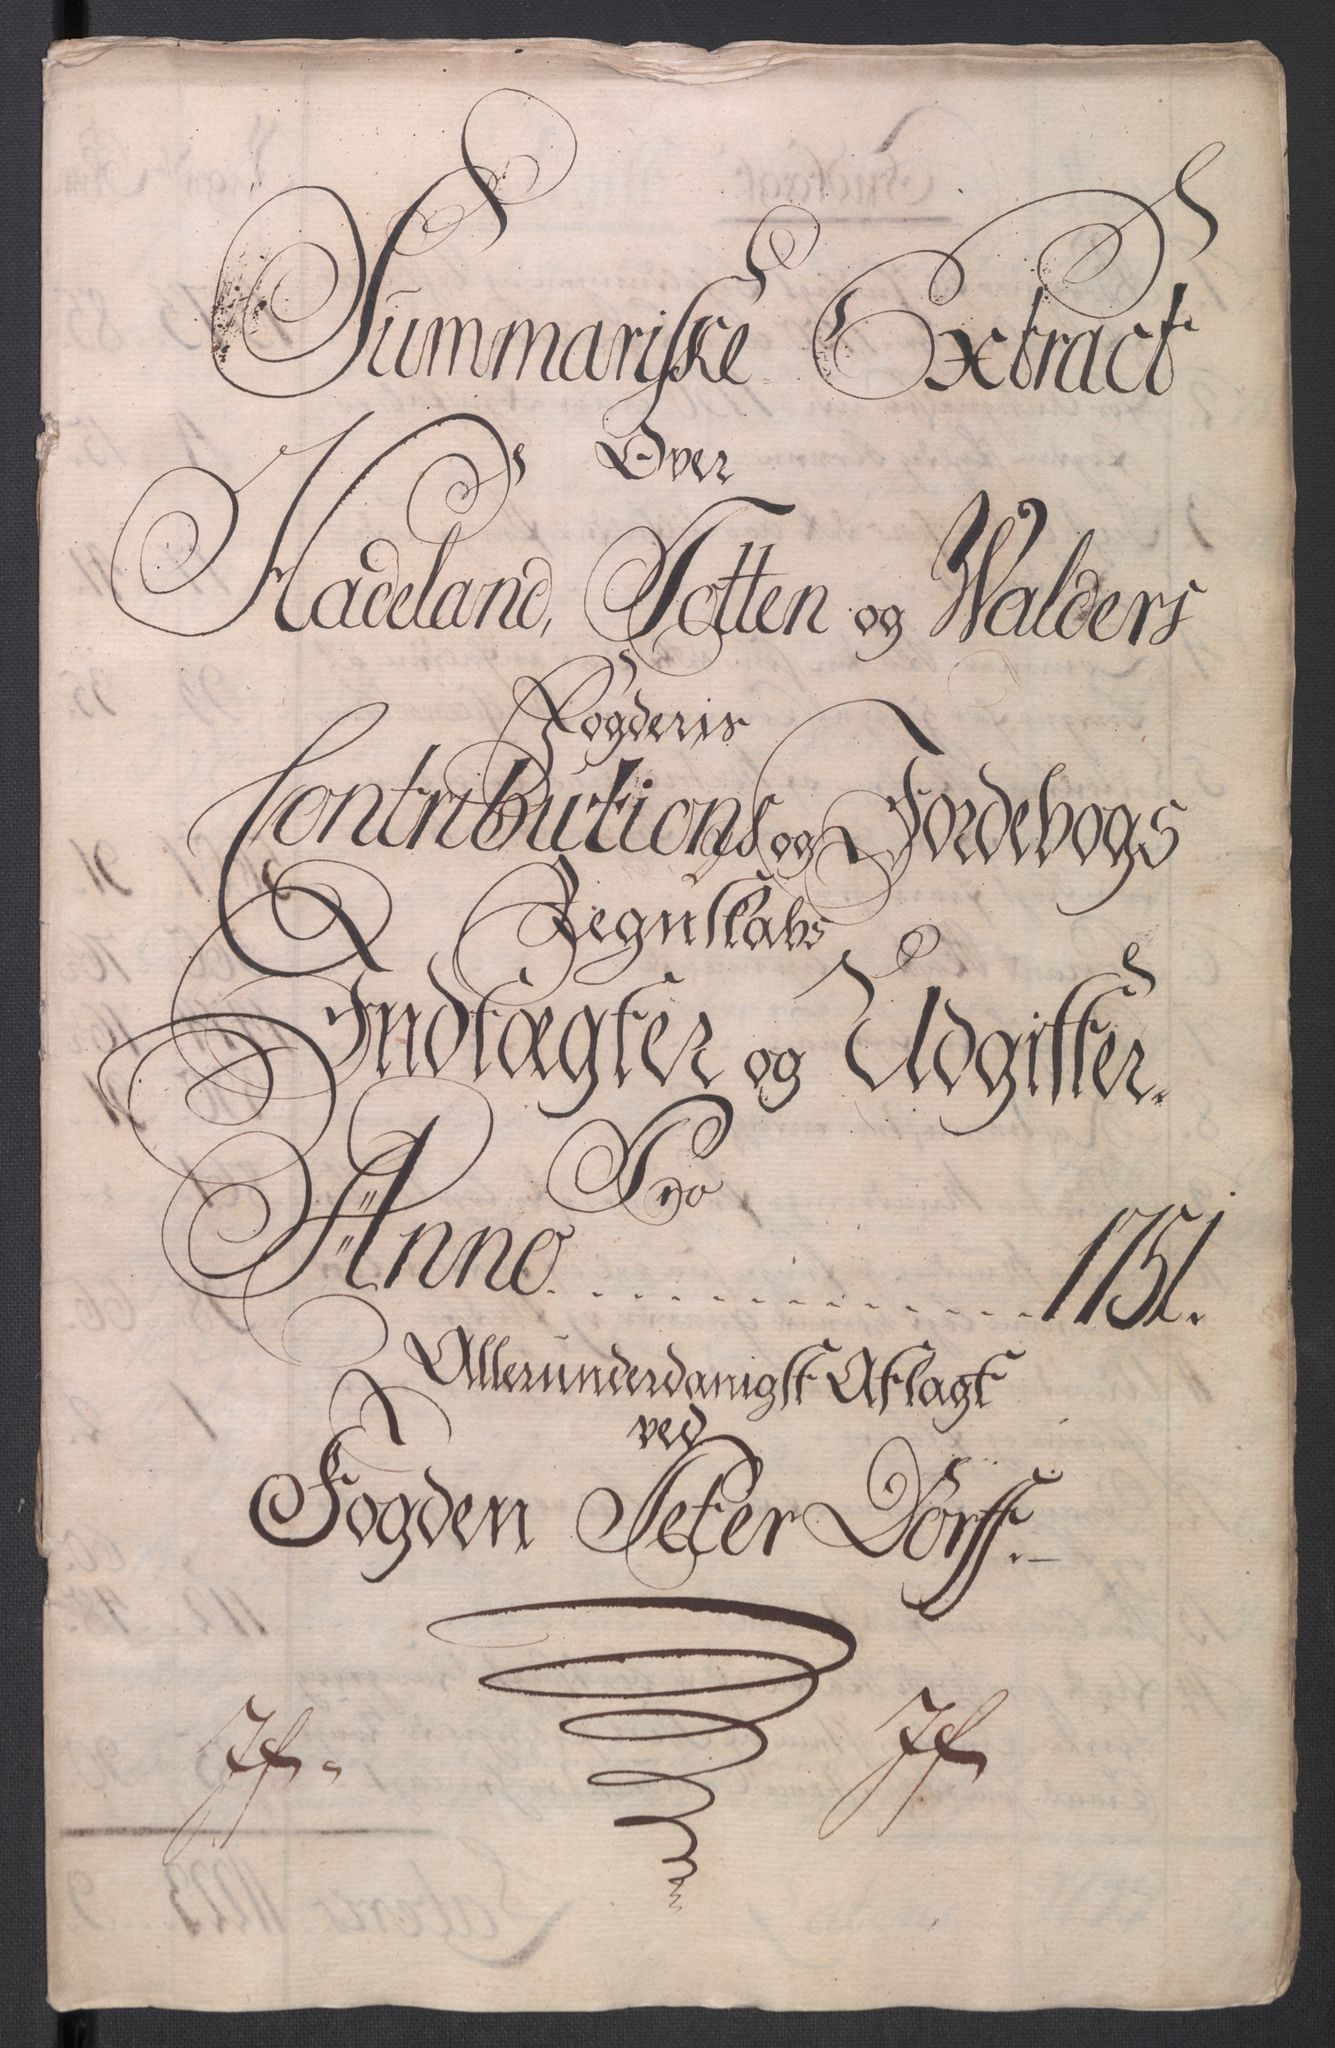 Summariske Extract
Over
Hadeland, Totten og Walders
Fogderis
Contributions og Jordebogs
Regnskabs
Indtægter og Udgifter.
Pro
Anno. . . . . . . . . . . . . . 1751.
Allerunderdanigst Aflagt
ved
Fogden Peter Dorff.